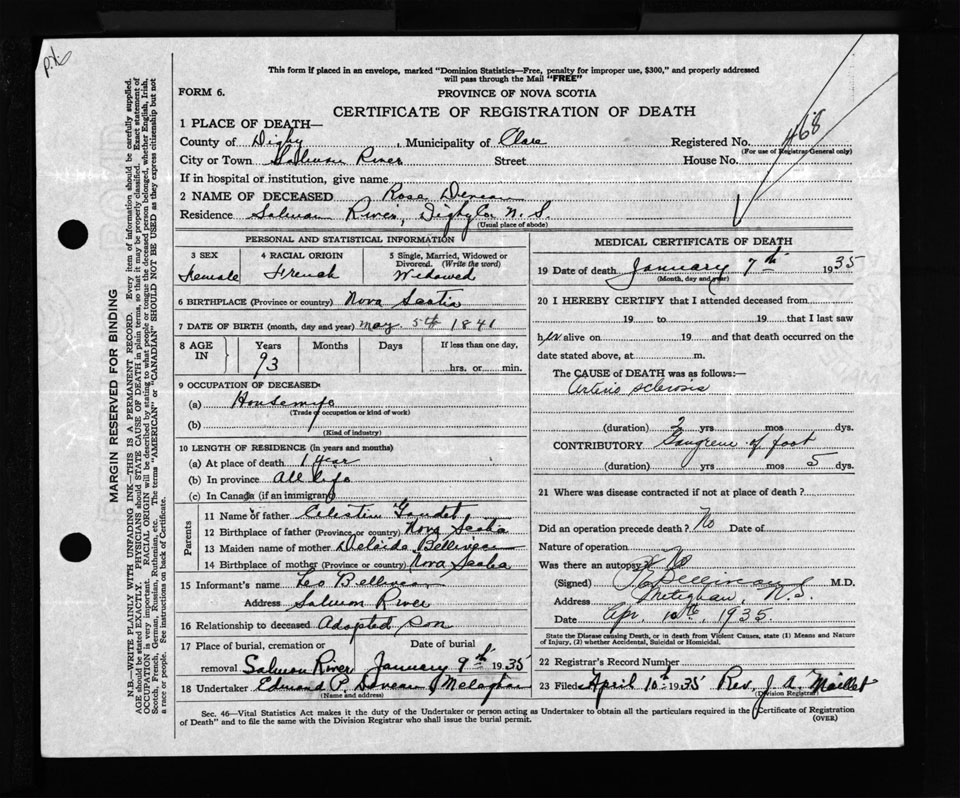 p.k
This form if placed in an envelope, marked "Dominion Statistics—Free, penalty for improper use, $300," and properly addressed
will pass through the Mail "FREE"
FORM 6.
PROVINCE OF NOVA SCOTIA
CERTIFICATE OF REGISTRATION OF DEATH
1 PLACE OF DEATH—
County of Digby, Municipality of Clare Registered No. 468
(For use of Registrar General only)
City or Town Salmon River Street House No.
If in hospital or institution, give name
2 NAME OF DECEASED Rose
Residence Salmon River, Digby Co N. S.
(Usual place of abode)
PERSONAL AND STATISTICAL INFORMATION
3 SEX Female
4 RACIAL ORIGIN French
5 Single, Married, Widowed or Divorced. (Write the word) Widowed
6 BIRTHPLACE (Province or country) Nova Scotia
7 DATE OF BIRTH (month, day and year) May. 5th 1841
8 AGE IN Years Months Days If less than one day,
93 hrs. or min.
9 OCCUPATION OF DECEASED:
(a) Housewife
(Trade or occupation or kind of work)
(b)
(Kind of industry)
10 LENGTH OF RESIDENCE (in years and months)
(a) At place of death 1 year
(b) In province All life
(c) In Canada (if an immigrant)
Parents
11 Name of father Celestin Gaudet
12 Birthplace of father (Province or country) Nova Scotia
13 Maiden name of mother Delaide Belliveau
14 Birthplace of mother (Province or country) Nova Scotia
15 Informant's name Leo Belliveau
Address Salmon River
16 Relationship to deceased Adopted son
17 Place of burial, cremation or Date of burial
removal Salmon River January 9th 1935
18 Undertaker Edward P. Deveau, Meteghan
(Name and address)
MEDICAL CERTIFICATE OF DEATH
19 Date of death January 7th 1935
(Month, day and year)
20 I HEREBY CERTIFY that I attended deceased from
19 to 19 that I last saw
her alive on 19 and that death occurred on the
date stated above, at m.
The CAUSE of DEATH was as follows:—
Arterio sclerosis
(duration) 2 yrs mos dys.
CONTRIBUTORY Gangrene of foot
(duration) yrs mos 5 dys.
21 Where was disease contracted if not at place of death?
Did an operation precede death? No Date of
Nature of operation
Was there an autopsy? No
(Signed) Belliveau M.D.
Address Meteghan, N.S.
Date Apr. 10th, 1935.
State the Disease causing Death, or in death from Violent Causes, state (1) Means and Nature
of Injury, (2) whether Accidental, Suicidal or Homicidal.
22 Registrar's Record Number
23 Filed April 10th 1935 Rev. J. A. Maillet
(Division Registrar)
Sec. 46—Vital Statistics Act makes it the duty of the Undertaker or person acting as Undertaker to obtain all the particulars required in the Certificate of Registration
of Death" and to file the same with the Division Registrar who shall issue the burial permit. (OVER)
MARGIN RESERVED FOR BINDING
N.B.—WRITE PLAINLY WITH UNFADING INK—THIS IS A PERMANENT RECORD. Every item of information should be carefully supplied.
AGE should be stated EXACTLY. PHYSICIANS should STATE CAUSE OF DEATH in plain terms, so that it may be properly classified. Exact statement of
OCCUPATION is very important. RACIAL ORIGIN will be described by stating to what people or tongue the deceased person belonged, whether English, Irish,
Scotch, French, German, Russian, Ruthenian, etc. The terms "AMERICAN" or "CANADIAN" SHOULD NOT BE USED as they express citizenship but not
a race or people. See instructions on back of Certificate.